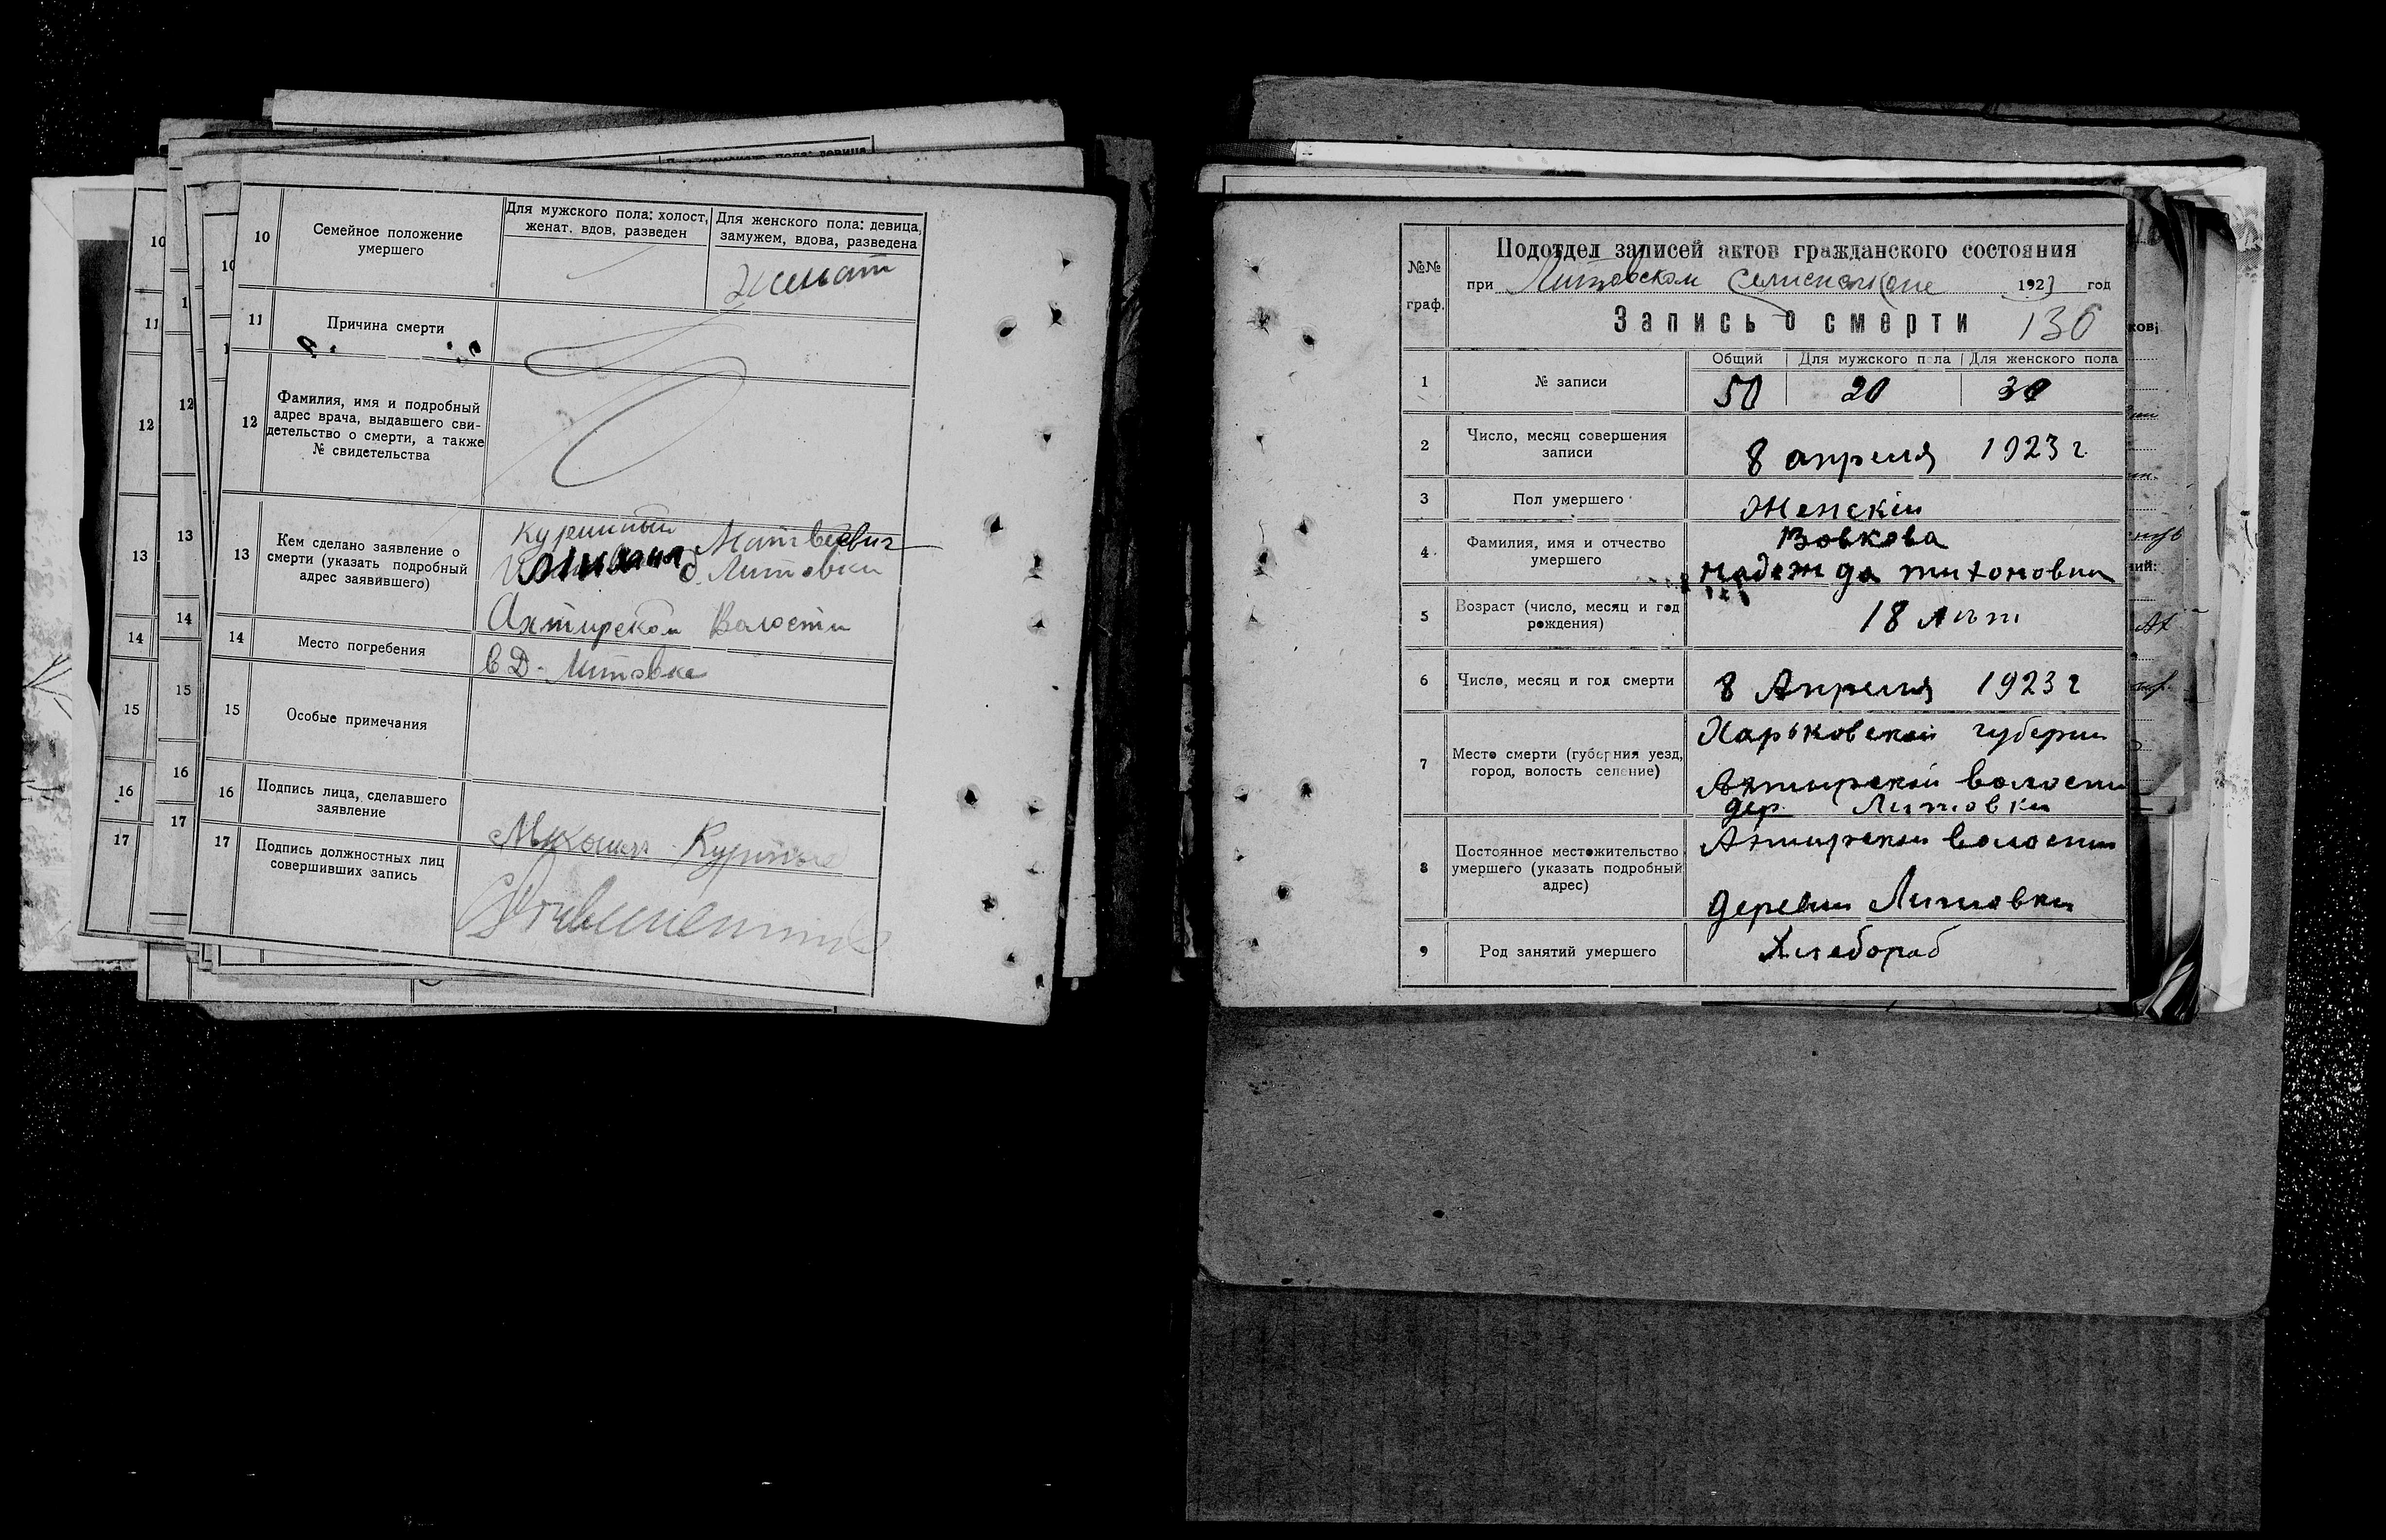 10
Семейное положение
умершего
Для мужского пола: холост,
женат, вдов, разведен
Для женского пола: девица,
замужем, вдова, разведена
женат
11
Причина смерти
12
Фамилия, имя и подробный
адрес врача, выдавшего сви-
детельство о смерти, а также
№ свидетельства
13
Кем сделано заявление о
смерти (указать подробный
адрес заявившего)
Матвеевич
д. Литовки
Ахтирской Волости
14
Место погребения
в Д. Литовке
15
Особые примечания
16
Подпись лица, сделавшего
заявление
17
Подпись должностных лиц
совершивших запись
10
11
12
13
14
15
16
17
12
13
14
15
16
17
№№
граф.
Подотдел записей актов гражданского состояния
при Литовском 1923 год
Запись о смерти 136
1
№ записи
Общий
Для мужского пола
Для женского пола
50
20
30
2
Число, месяц совершения
записи
8 апреля 1923 г.
3
Пол умершего
Женскій
4
Фамилия, имя и отчество
умершего
Вовкова
надежда тихоновна
5
Возраст (число, месяц и год
рождения)
18 лѣт
6
Число, месяц и год смерти
8 Апреля 1923 г
7
Место смерти (губерния уезд,
город, волость селение)
Харьковской губерни
Ахтырской волости
дер. Литовки
8
Постоянное местожительство
умершего (указать подробный
адрес)
Ахтырской волости
деревни Литовки
9
Род занятий умершего
Хлебораб